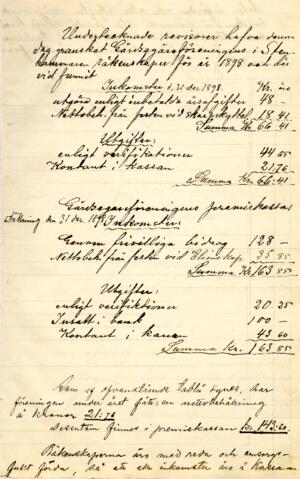 Undertecknade revisorer hafva denna
dag granskat Gärdsgårdsföreningens i Sten-
räkenskaper för år 1898 och der
vid funnit
Inkomster i 31 dec 1898. Kr. öre
utgöra enligt inbetalda årsafgifter 48 -
Nettobeh. från festen vid 18.41
Summa Kr 66.41
Utgifter:
enligt verifikationer 44 65
Kontant i kassan 21.76
Summa Kr. 66.41
premiekassas
ställning den 31 dec 1898 Inkomster:
Genom frivilliga bidrag 128 -
Nettobeh. från festen vid 35 85
Summa Kr. 163 85
Utgifter:
enligt verifiktioner 20 25
Insatt i bank 100 -
Kontant i kassan 43 60
Summa Kr. 163 85
Som af ofvanstående tablå synes, har
föreningen under året fått en nettobehållning
å kronor 21:76
Dessutom finnes i premiekassan Kr. 143.60
Räkenskaperna äro med reda och
fullt förda, så att alla inkomster äro